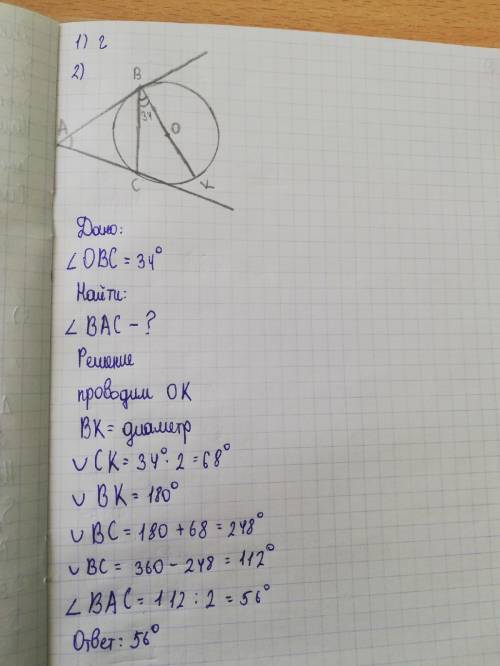 1) г
2)
B
A
34
O
C
K
Дано:
∠OBC = 34°
Найти:
∠BAC - ?
Решение
проводим OK
BK = диаметр
∪ CK = 34° · 2 = 68°
∪ BK = 180°
∪ BC = 180 + 68 = 248°
∪ BC = 360 - 248 = 112°
∠BAC = 112 : 2 = 56°
Ответ: 56°